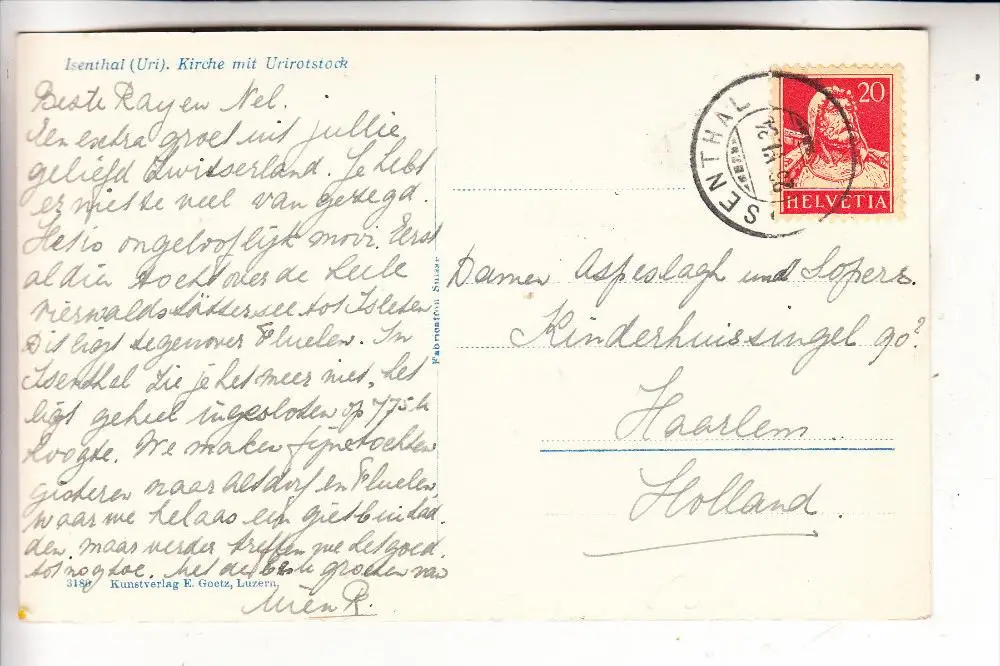 Isenthal (Uri). Kirche mit Urirotstock
Beste Ray en Nel.
Een extra groet uit jullie
geliefd Zwitserland. Je hebt
er niets te veel van gezegd.
Het is ongelooflijk mooi. Eerst
al die tocht over de heele
Vierwaldstättersee tot Isleten
Dit ligt tegenover Fluelen. In
Isenthal zie je het meer niet, het
ligt geheel ingesloten op 775 M
hoogte. We maken fijne tochten
gisteren naar Altdorf en Fluelen
waar we helaas een gietbui had
den, maar verder treffen we het goed.
tot nog toe. Met de beste groeten van
Mien R.
3180 Kunstverlag E. Goetz, Luzern.
Fabrication Suisse
SENTHAL
20
HELVETIA
Damen Aspeslagh und Sopers.
Kinderhuissingel 90?
Haarlem.
Holland.